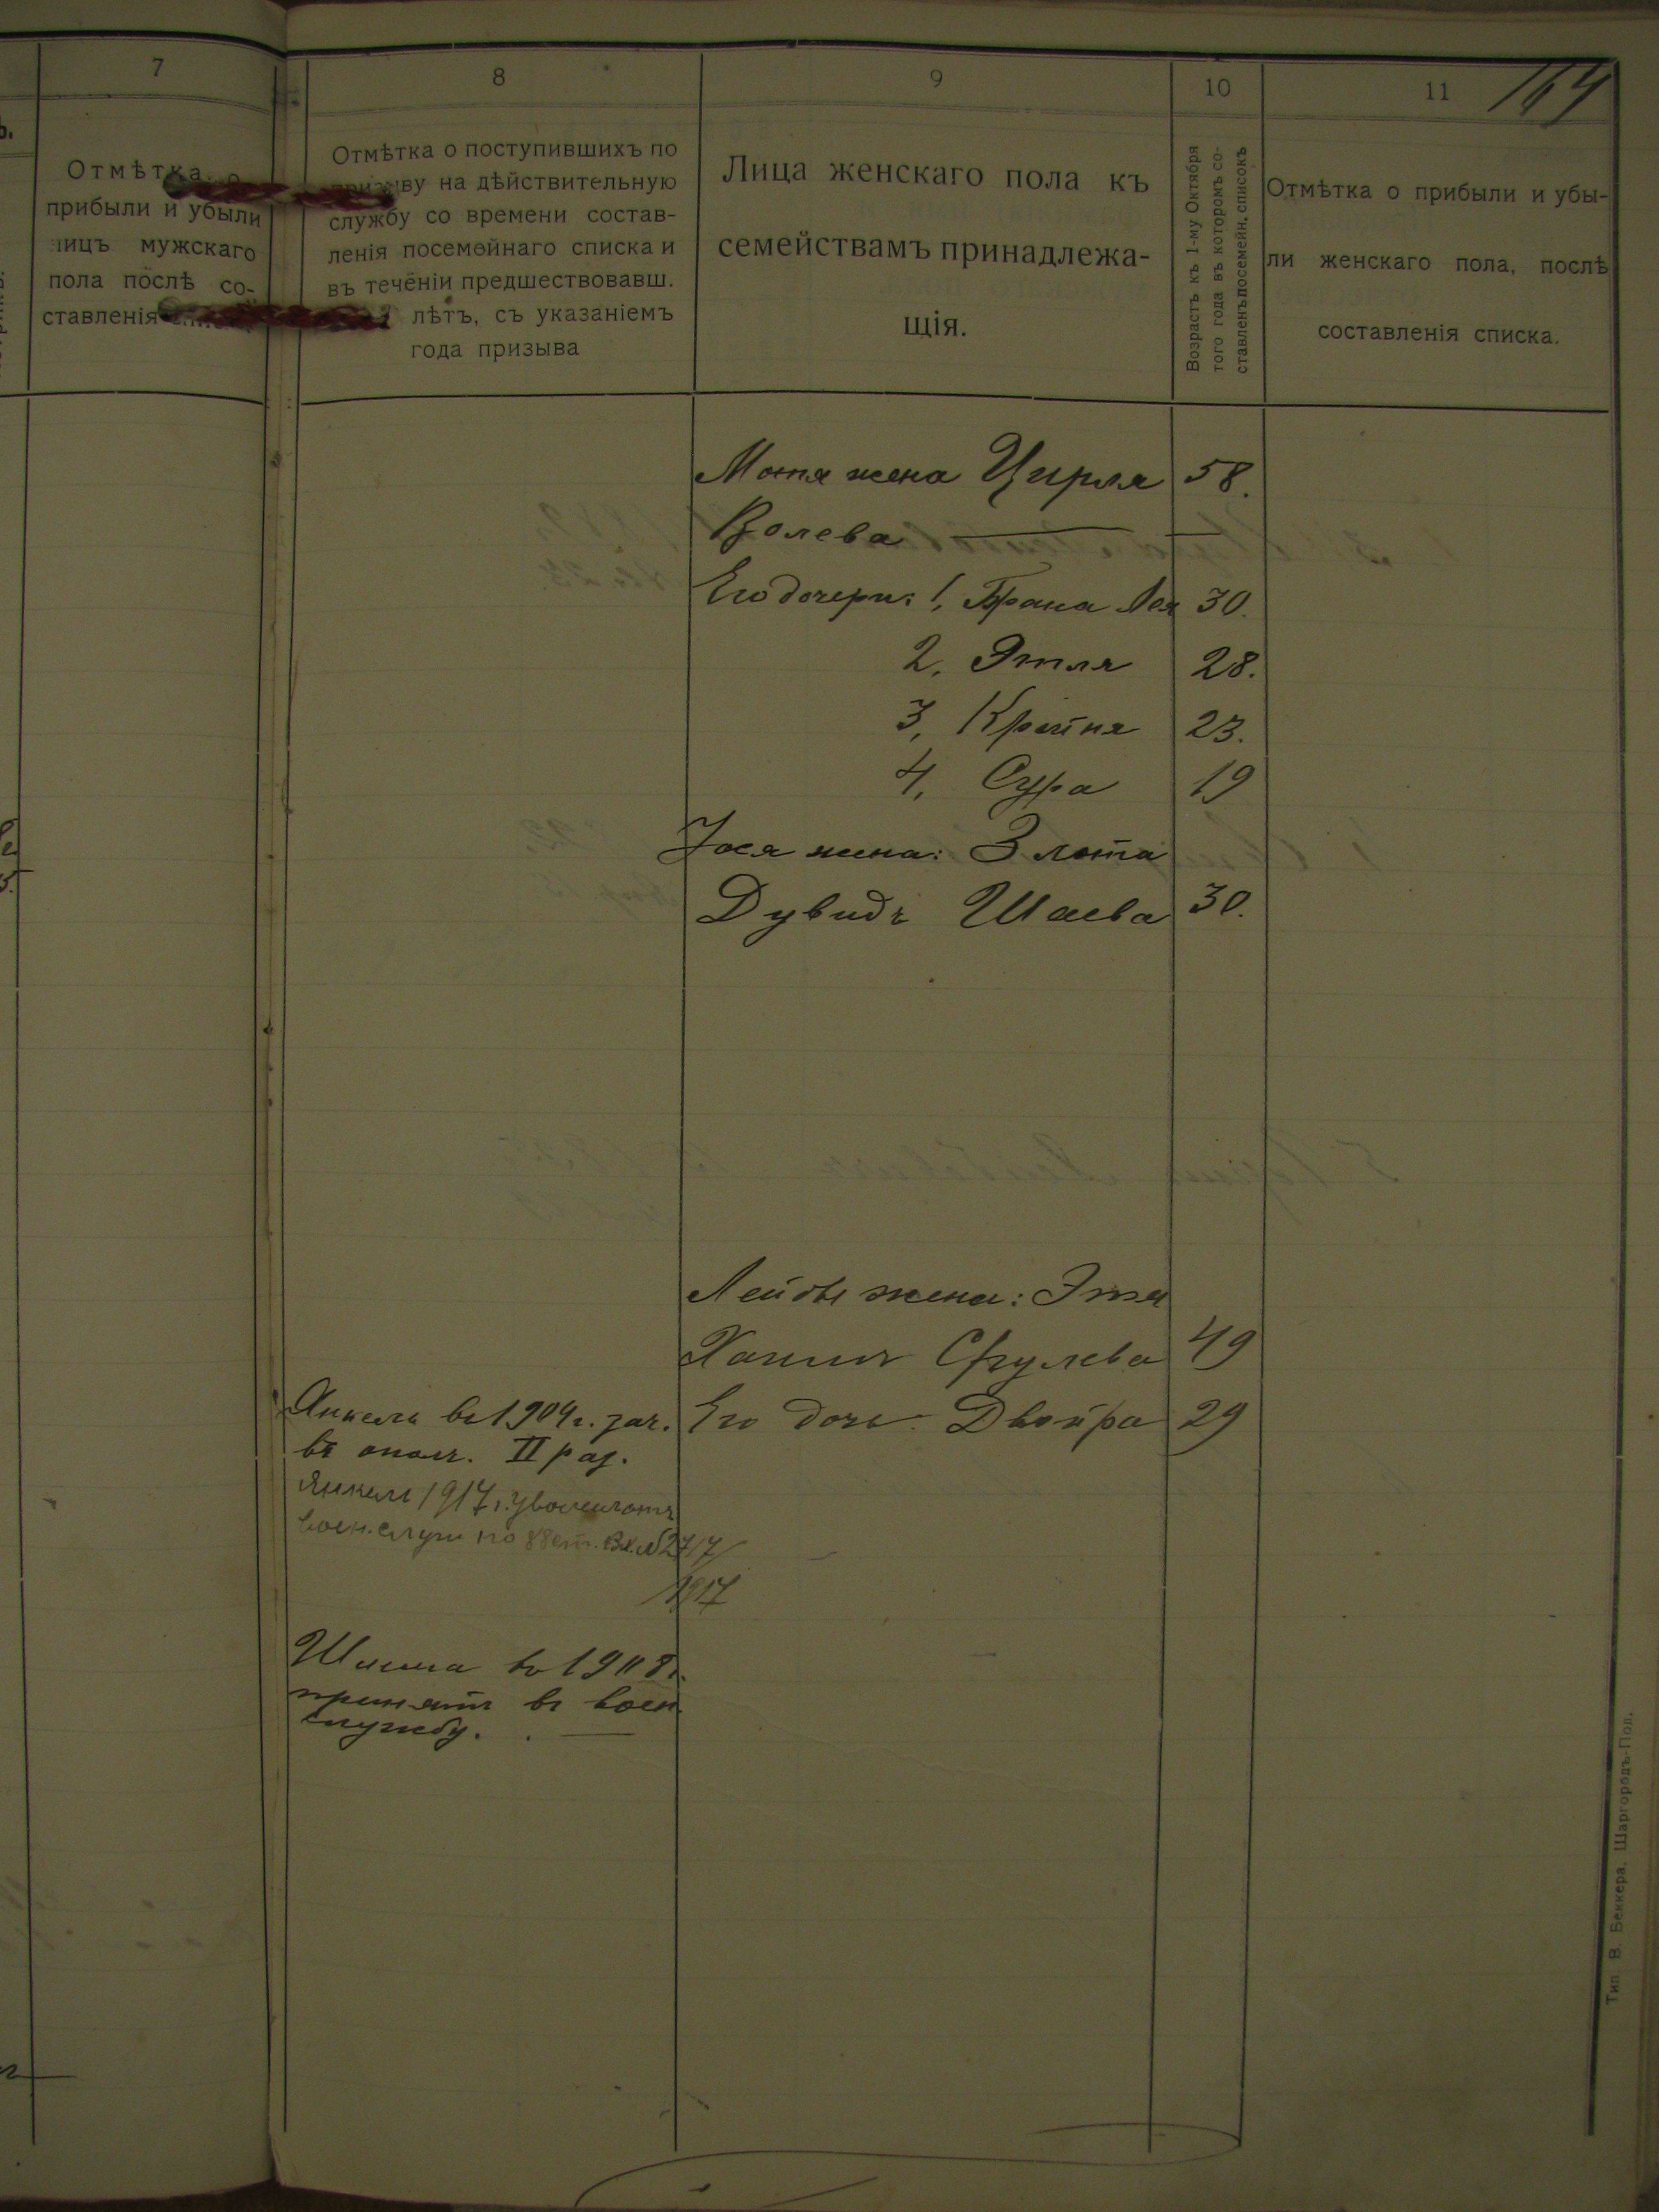 7
8
9
10
11
164
Отмѣтка о
прибыли и убыли
лицъ мужскаго
пола послѣ со-
ставленія
Отмѣтка о поступившихъ по
призыву на дѣйствительную
службу со времени состав-
ленія посемейнаго списка и
въ теченіи предшествовавш.
лѣтъ, съ указаніемъ
года призыва
Лица женскаго пола къ
семействамъ принадлежа-
щія.
Возрастъ къ 1-му Октября
того года въ которомъ со-
ставленъ посемейн. списокъ
Отмѣтка о прибыли и убы-
ли женскаго пола, послѣ
составленія списка.
Мотя жена Цирля 58.
Волева
Его дочери: 1, Брана Лея 30.
2, Этля 28.
3, Крейня 23.
4, Сура 19
Іося жена: Злота
Дувидъ Шаева 30.
Лейбы жена: Этя
Ханна Срулева 49
Его дочь Двойра 29
Янкель въ 1904 г. зач.
въ ополч. II раз.
Янкель 1917 г. уволенъ отъ
воен. служ по 88 ст. Вх. №2717/
1917
Шлема въ 1908 г.
принятъ въ воен.
службу.
Тип. В. Беккера, Шаргородъ-Под.